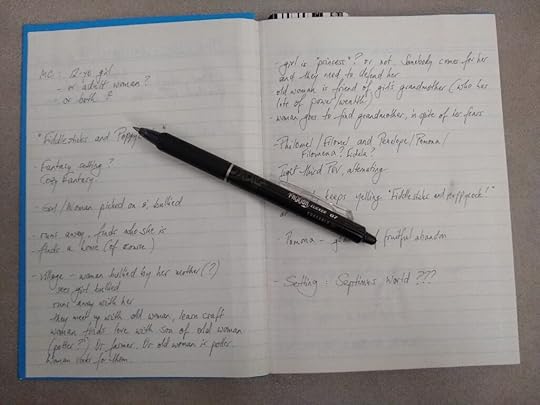 MC: 12-yo girl
- or adult woman?
- or both?
"Fiddlesticks and
- Fantasy setting?
Cozy Fantasy
- Girl/Woman picked on &, bullied
- runs away, finds who she is
finds a home (of course)
- village - woman bullied by her mother(?)
sees girl bullied
runs away with her
they meet up with old woman, learn craft
woman finds love with son of old woman
(potter?) Or farmer. Or old woman is potter.
woman works for them.
- girl is "princess"? or not. Somebody comes for her
and they need to defend her
old woman is friend of girl's grandmother (who has
lots of power/wealth)
woman goes to find grandmother, in spite of her fears
- Philomel/Filomel and Penelope/Pomona/
Filomena?
- Tight-third POV, alternating
keeps yelling "Fiddlesticks and Poppycock!"
or
- Pomona - fruitful abandon
- Setting: Septimus World???
FRIXION CLICKER 07
ERASABLE